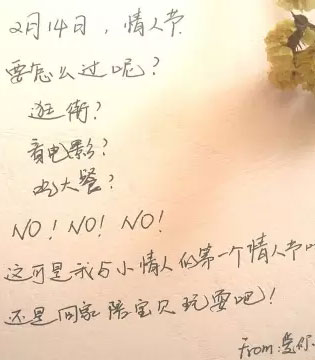 2月14日，情人节
要怎么过呢？
逛街？
看电影？
吃大餐？
NO！NO！NO！
这可是我与小情人的第一个情人节
还是回家陪宝贝玩耍吧！
From：爱你